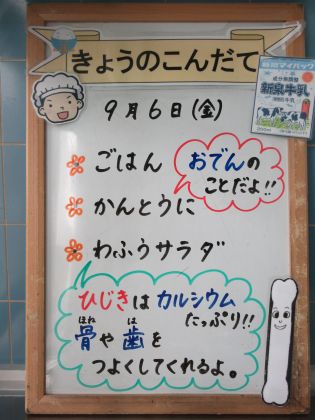 きょうのこんだて
9月6日(金)
ごはん
かんとうに
わふうサラダ
おでんの
ことだよ!!
ひじきはカルシウム
たっぷり!!
ほね は
骨や歯を
つよくしてくれるよ。
成分無調整
新泉牛乳
200ml